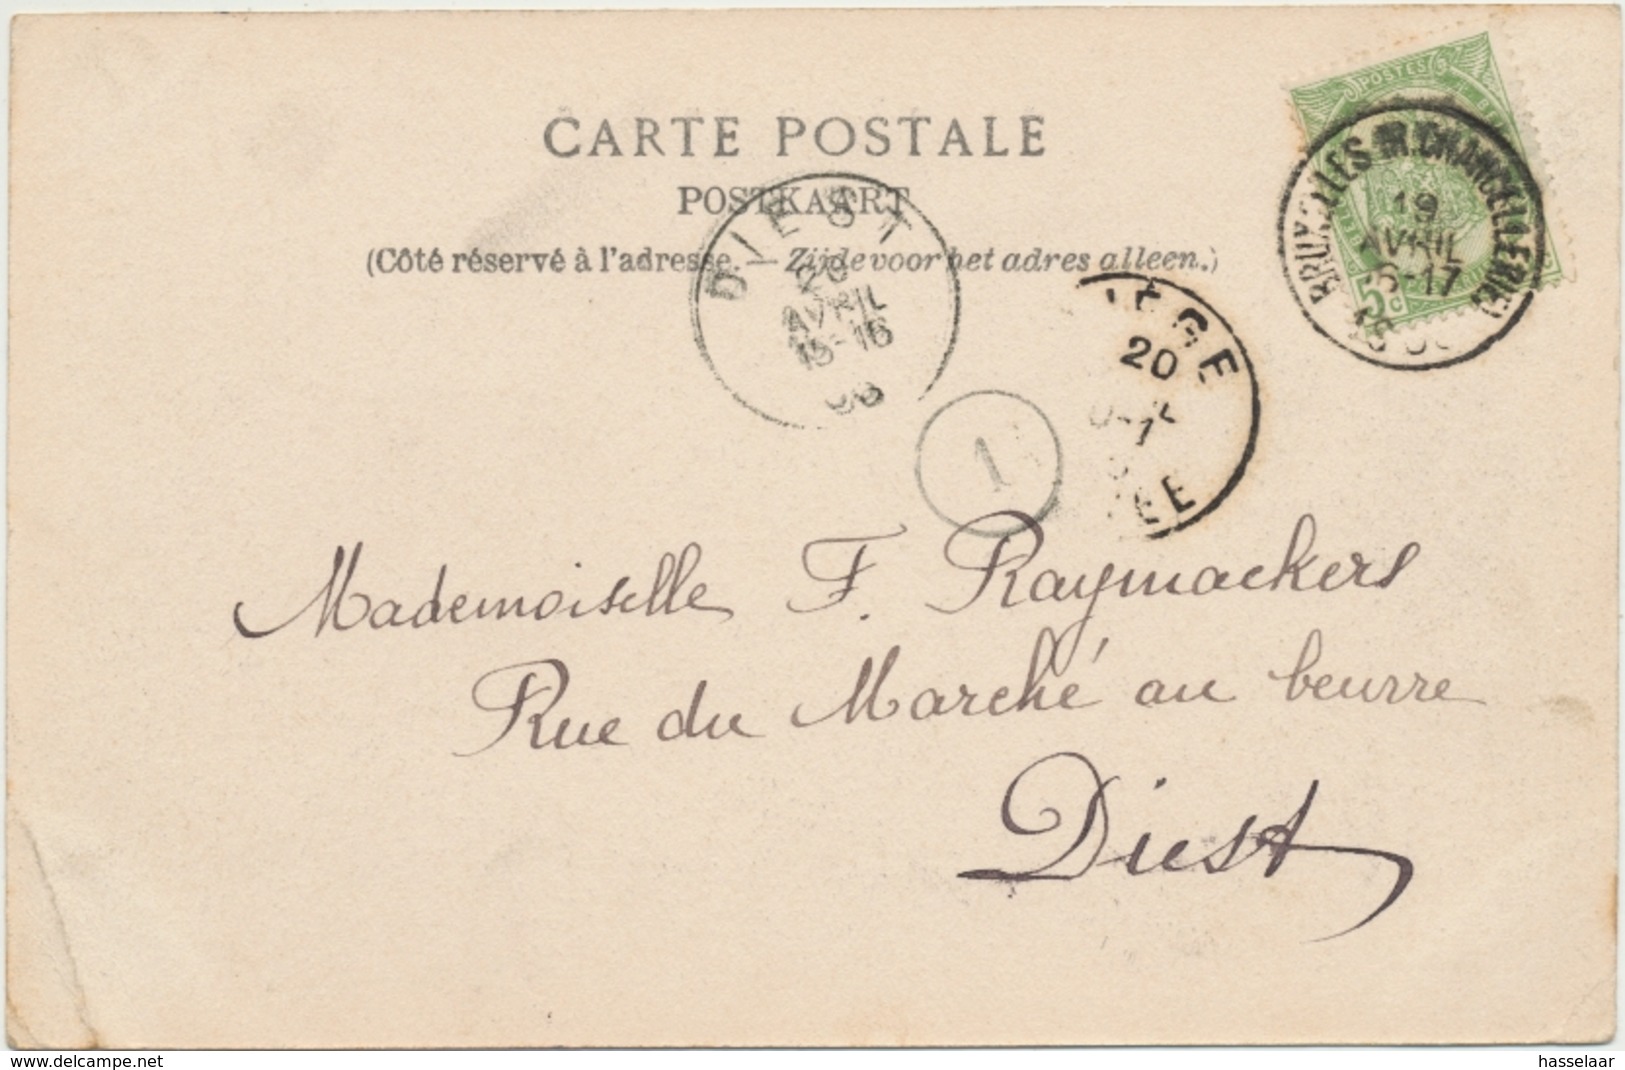 CARTE POSTALE
POSTKAART
(Côté réservé à l'adresse. — Zijde voor het adres alleen.)
POSTES
5 c
BRUXELLES (R. CHANCELLERIE)
19
AVRIL
-17
DIEST
20
AVRIL
15-16
20
1
Mademoiselle F. Raymackers
Rue du Marché au beurre
Diest
delcampe.net
hasselaar